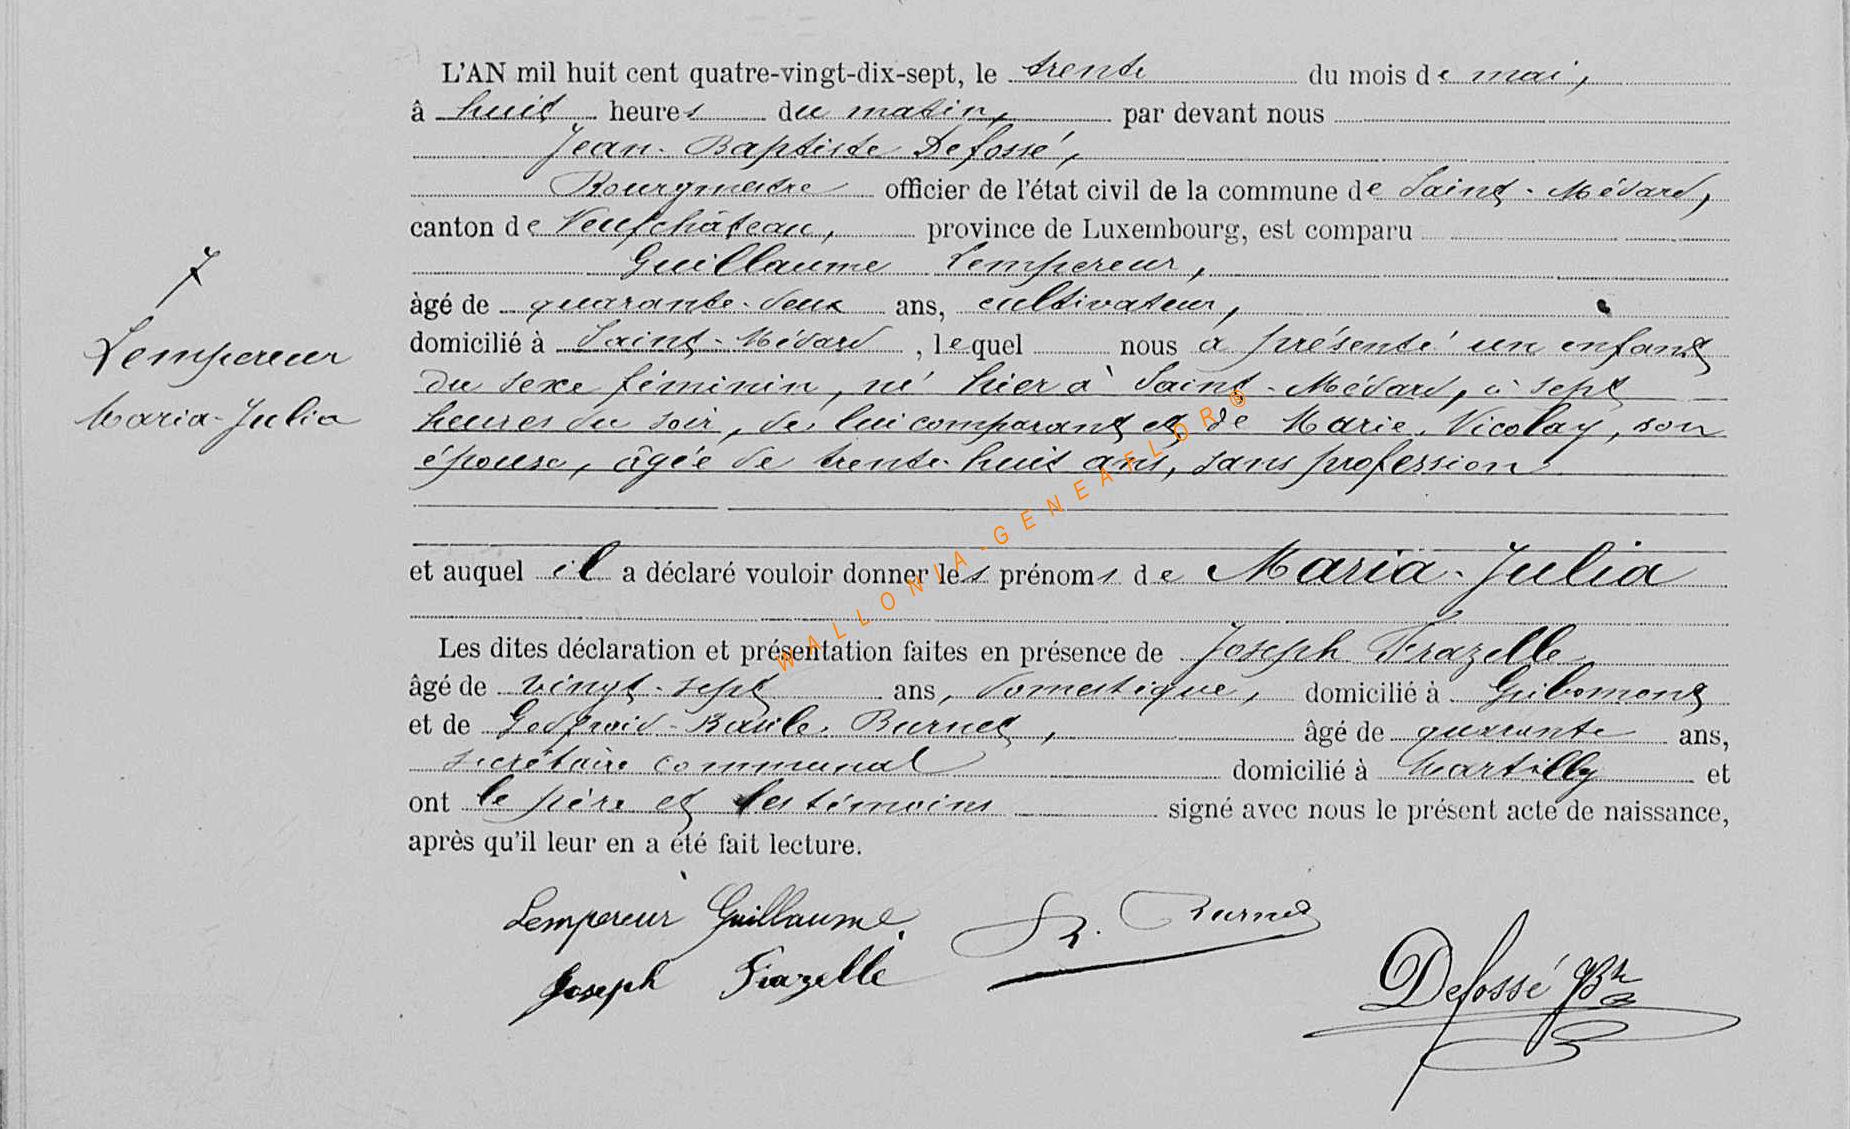 L'AN mil huit cent quatre-vingt-dix-sept, le trente du mois de mai,
à huit heures du matin, par devant nous
Jean-Baptiste Defossé,
Bourgmestre officier de l'état civil de la commune de Saint-Médard,
canton de Neufchâteau, province de Luxembourg, est comparu
Guillaume Lempereur,
âgé de quarante-deux ans, cultivateur,
domicilié à Saint-Médard, lequel nous a présenté un enfant
du sexe féminin, né hier à Saint-Médard, à sept
heures du soir, de lui comparant et de Marie Nicolay, son
épouse, âgée de trente-huit ans, sans profession
et auquel il a déclaré vouloir donner les prénoms de Maria-Julia
Les dites déclaration et présentation faites en présence de Joseph Frazelle
âgé de vingt-sept ans, domestique, domicilié à Gribomont
et de Godfroid-Basile Burnet, âgé de quarante ans,
secrétaire communal domicilié à Martilly et
ont le père et les témoins signé avec nous le présent acte de naissance,
après qu'il leur en a été fait lecture.
7
Lempereur
Maria-Julia
Lempereur Guillaume
Burnet
Joseph Frazelle
Defossé JBte
WALLONIA-GENEAFLOR®